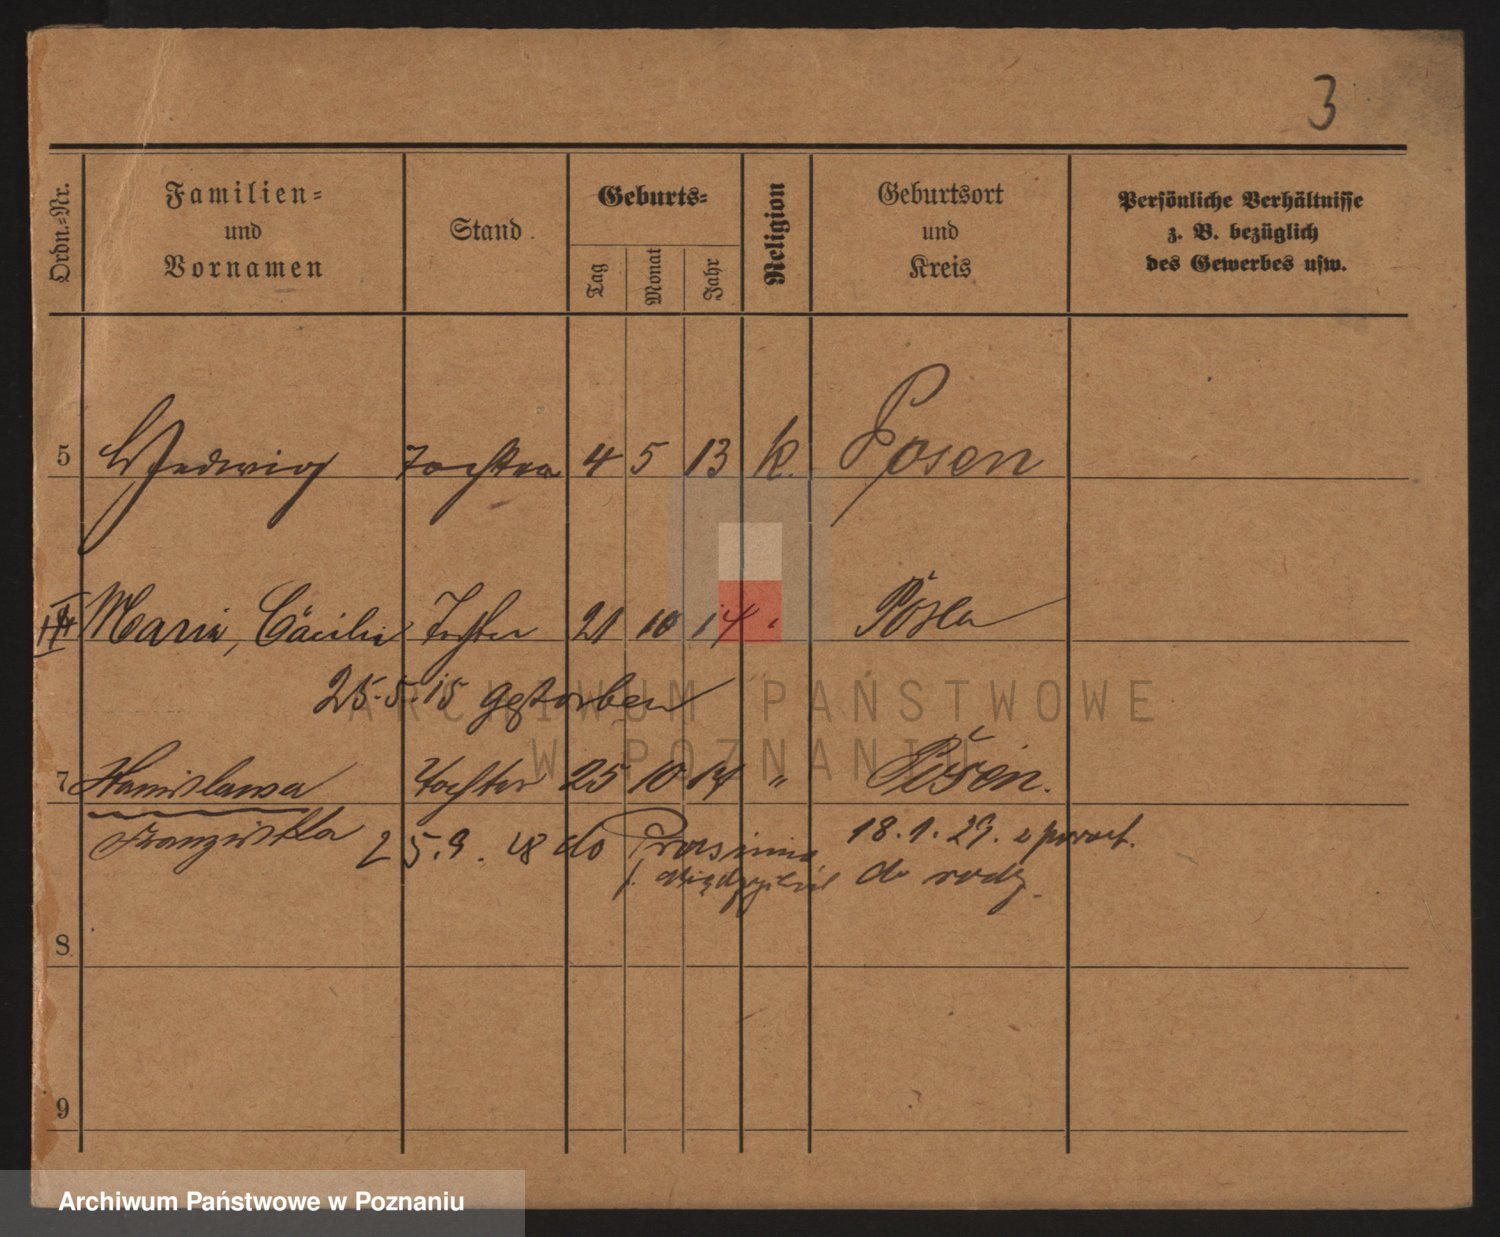 3
Ordn.-Nr.
Familien-
und
Vornamen
Stand
Geburts-
Tag
Monat
Jahr
Religion
Geburtsort
und
Kreis
Persönliche Verhältnisse
z. B. bezüglich
des Gewerbes usw.
5 Hedwig Tochter 4 5 13 k. Posen
Maria, Cäcilie Tochter 21 10 14 "
25.5.15 gestorben
7 Stanislawa Tochter 25 10 14 " Posen.
Franziska 25.9.28 do 18.1.29. z powrot.
do rodz.
8
9
ARCHIWUM PAŃSTWOWE
W POZNANIU
Archiwum Państwowe w Poznaniu